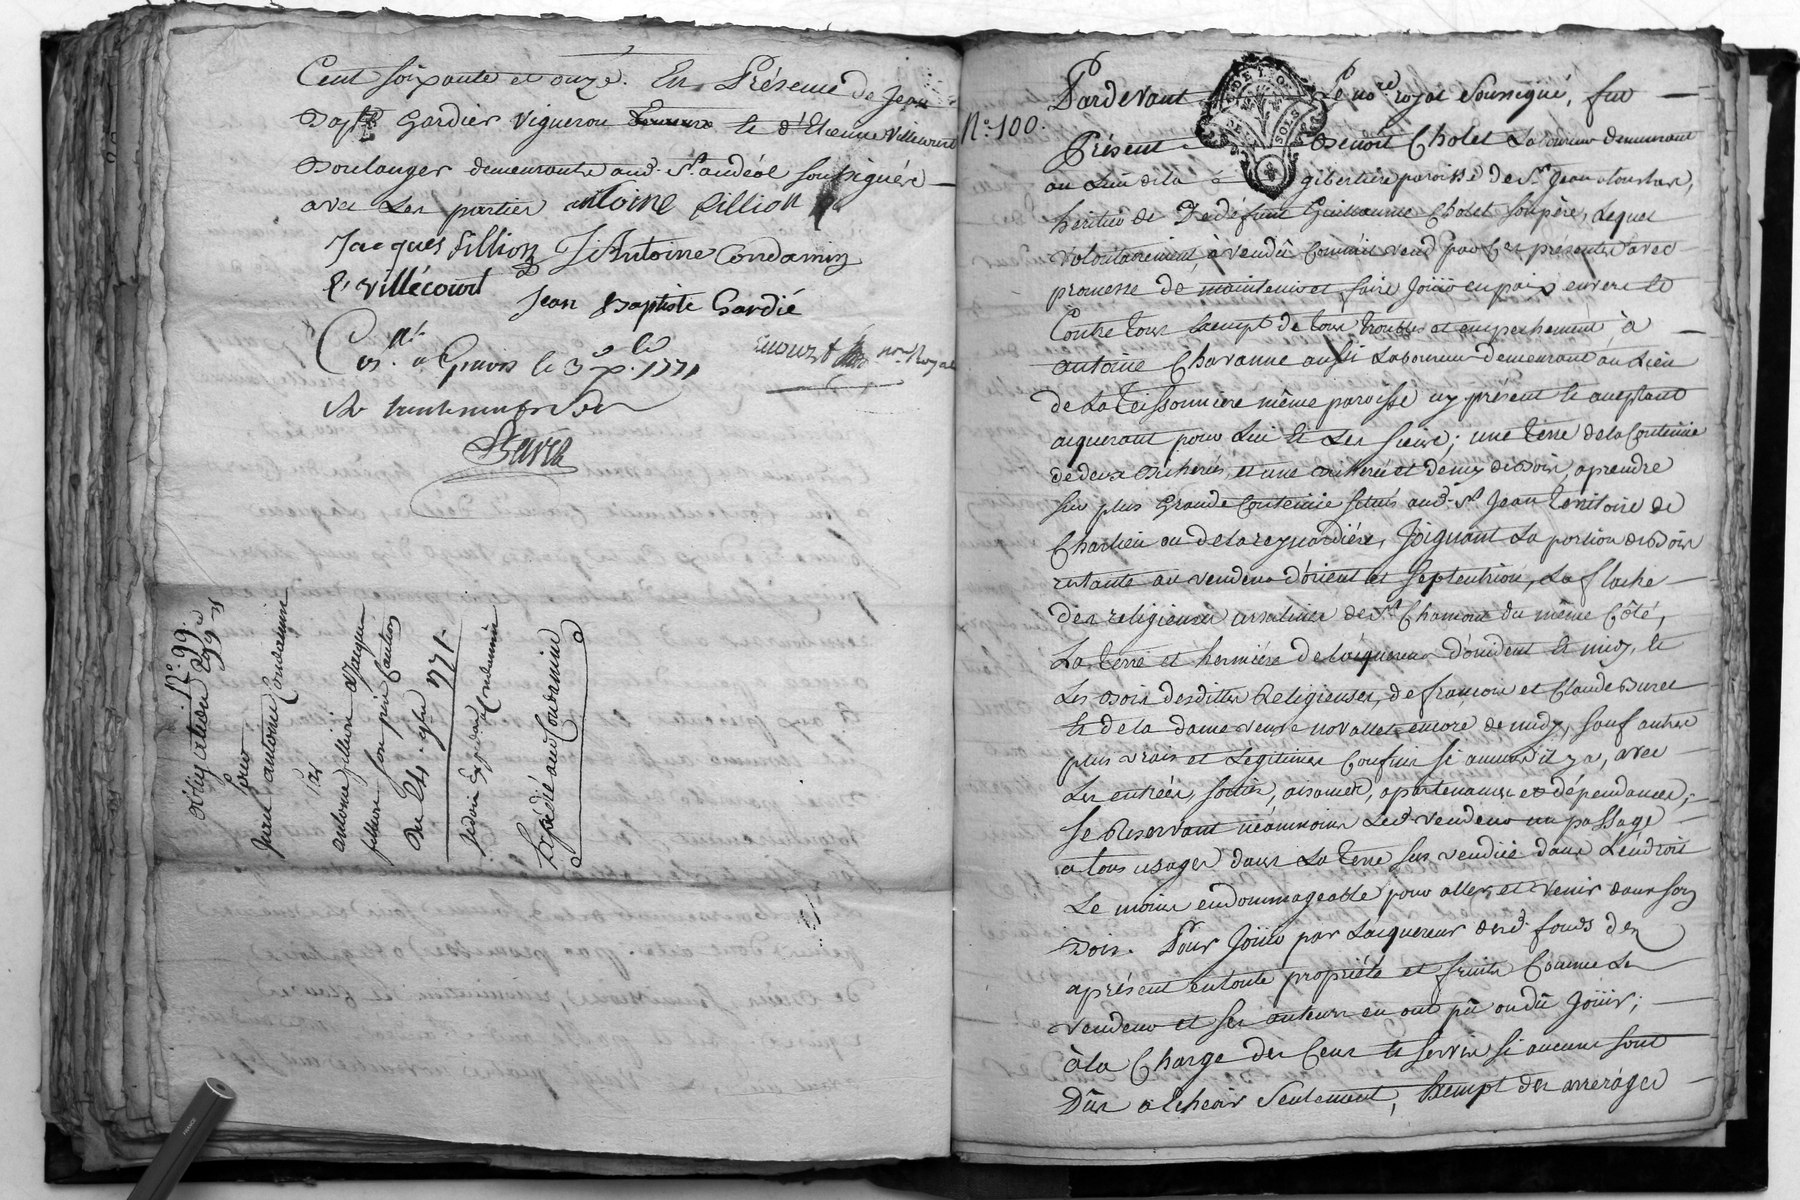 Cent soixante et onze. En Présence de Jean
Bapte Gardier vigneron et d'Etienne Villecourt
Boulanger demeurants aud. St. andéol soussignés
avec Les parties antoine fillion
Jacques fillion J Antoine Condamin
E. villécourt
Jean Baptiste Gardié
not. Royal
Con.lé à Givors le 3e Xbre 1771
Rx trente neuf sols
N.° 99.
obligation
Pour
Jean antoine Condamine
Par
antoine fillion & Jacques
fillion son père Caution
Du 24. 9bre 1771.
Expédié au Condamine
N.° 100.
GEN. DE LYON
DE SOLS
Pardevant Le no.re royal Soussigné, fut
Présent Benoit Cholet Laboureur demeurant
au Lieu de la gibertière paroisse de St. Jean Toulas,
héritier de défunt Guillaume Cholet son père, Lequel
volontairement, à vendu Comme il vend par Ces présentes avec
promesse de maintenir et faire Jouir en paix envers et
Contre tous Exempt de tous troubles et empechements, à
antoine Chavanne aussi Laboureur demeurant au Lieu
de La Teissonniere même paroisse icy présent et aceptant
aiquerant pour Lui et Les siens; une terre de la Contenue
de deux Bicherées, et une bicherée et demy de Bois, aprendre
sur plus Grande Contenue situés aud. St. Jean territoire de
Charlieu ou de la reynardière, Joignant La portion de Bois
restante au vendeur d'orient et septentrion, La flache
des religieuses ursulines de St. Chamond du même Côté,
La terre et hermière de L'aiquereur d'occident et midy, et
Les Bois desdittes Religieuses, de françois et Claude Buret
et de la dame veuve novallet encore de midy, sauf autres
plus vrais et Legitimes Confins si aucuns il y a, avec
Les entrées, sorties, aisances, apartenances et dépendances;
se Réservant néanmoins Led. vendeur un passage
a tous usages dans La terre sus vendüe dans L'endroit
Le moins endommageable pour aller et venir dans son
Bois. Pour Jouir par L'aiquereur desd. fonds dès
aprésent en toute propriété et fruits Comme Le
vendeur et ses auteurs en ont pû ou dû Joüir;
à La Charge des Cens et servis si aucuns sont
Dûs a Echeoir seulement, Exempt des arrerages